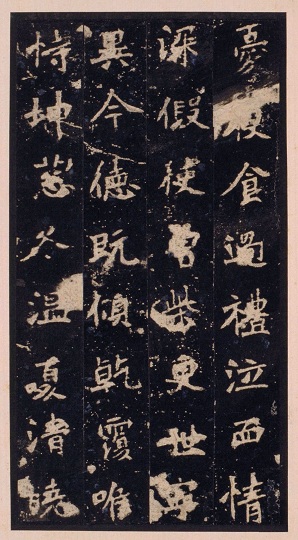 憂食過禮泣血情
深假使曾柴更世寧
異今德既傾乾覆唯
恃坤慈冬溫夏清曉